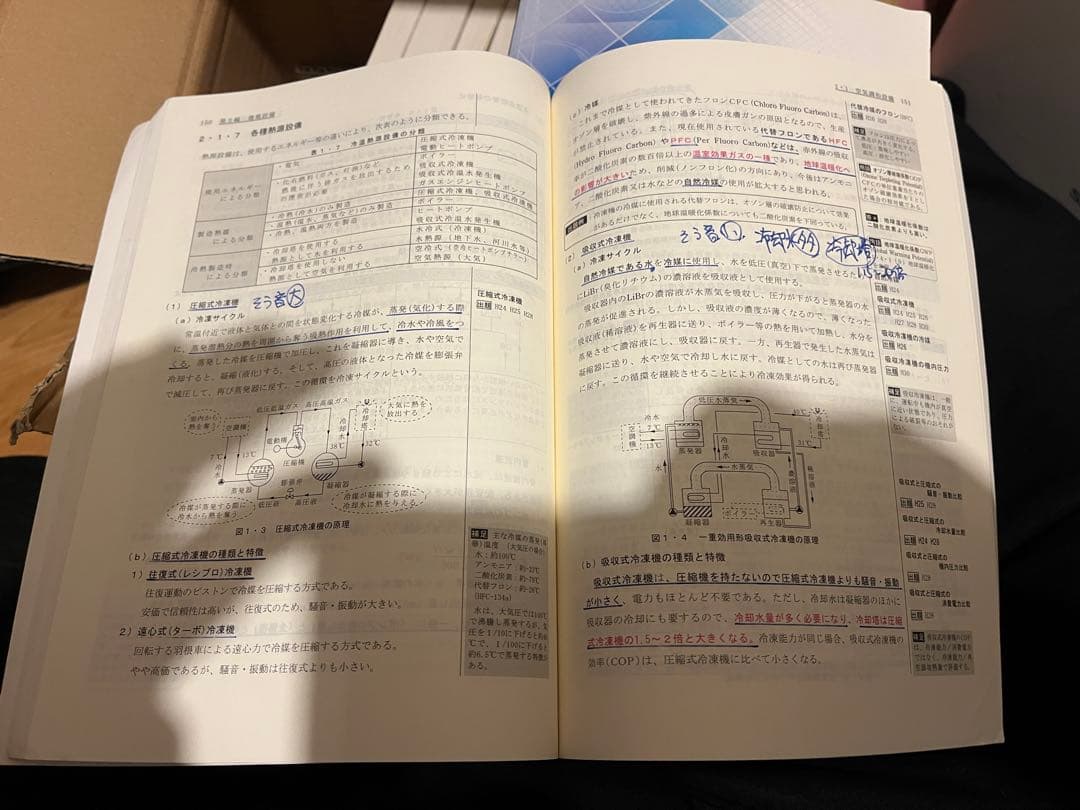 2・1・7 各種熱源設備
熱源設備は、使用するエネルギー等の違いにより、次表のように分類できる。
表1・7 冷温熱源設備の分類
使用エネルギーによる分類
・電気
圧縮式冷凍機
電動ヒートポンプ
ボイラー
吸収式冷凍機
吸収式冷温水発生機
ガスエンジンヒートポンプ
製造熱源による分類
・冷熱(冷水)のみ製造
圧縮式冷凍機、吸収式冷凍機
・温熱(温水、蒸気など)のみ製造
ボイラー
・冷熱、温熱両方を製造
ヒートポンプ
吸収式冷温水発生機
冷熱製造時による分類
・冷却塔を使用する
熱源として水を利用する
水冷式(冷凍機)
水熱源(地下水、河川水等)
・冷却塔を使用しない
熱源として空気を利用する
空気熱源(大気)
(1) 圧縮式冷凍機 そう音大
(a) 冷凍サイクル
常温付近で液体と気体との間を状態変化する冷媒が、蒸発(気化)する際
に、蒸発潜熱分の熱を周囲から奪う吸熱作用を利用して、冷水や冷風をつ
くる。蒸発した冷媒を圧縮機で加圧し、これを凝縮器に導き、水や空気で
冷却すると、凝縮(液化)する。そして、高圧の液体となった冷媒を膨張弁
で減圧して、再び蒸発器に戻す。この循環を冷凍サイクルという。
圧縮式冷凍機
出題 H24 H25 H28
室内から熱を奪う
空調機
低圧低温ガス
高圧高温ガス
冷却塔
大気に熱を放出する
電動機
圧縮機
冷却水
38℃
32℃
7℃
13℃
冷水
蒸発器
膨張弁
凝縮器
低圧液
高圧液
冷媒が蒸発する際に冷水から熱を奪う
冷媒が凝縮する際に冷却水に熱を与える
図1・3 圧縮式冷凍機の原理
(b) 圧縮式冷凍機の種類と特徴
1) 往復式(レシプロ)冷凍機
往復運動のピストンで冷媒を圧縮する方式である。
安価で信頼性は高いが、往復式のため、騒音・振動が大きい。
2) 遠心式(ターボ)冷凍機
回転する羽根車による遠心力で冷媒を圧縮する方式である。
やや高価であるが、騒音・振動は往復式よりも小さい。
補足 主な冷媒の蒸発(沸
騰)温度 (大気圧の場合)
水:約100℃
アンモニア:約-33℃
代替フロン:約-26℃
(HFC-134a)
水は、大気圧では100℃
で沸騰し蒸発するが、気
圧を1/10に下げると約46
℃で、1/100に下げると
約6.5℃で蒸発する特徴が
ある。
2・1 空気調和設備 151
(c) 冷媒
これまで冷媒として使われてきたフロンCFC(Chloro Fluoro Carbon)は、
オゾン層を破壊し、紫外線の過多による皮膚ガンの原因となるので、生産
が禁止されている。また、現在使用されている代替フロンであるHFC
(Hydro Fluoro Carbon)やPFC(Per Fluoro Carbon)などは、赤外線の吸収
率が二酸化炭素の数百倍以上の温室効果ガスの一種であり、地球温暖化へ
の影響が大きいため、削減(ノンフロン化)の方向にあり、今後はアンモニ
ア、二酸化炭素又は水などの自然冷媒の使用が拡大すると思われる。
冷凍機の冷媒に使用される代替フロンは、オゾン層の破壊防止について効果
があるだけでなく、地球温暖化係数についても二酸化炭素を下回っている。
(2) 吸収式冷凍機 そう音小、冷却水多 冷却塔 1.5〜2倍
(a) 冷凍サイクル
自然冷媒である水を冷媒に使用し、水を低圧(真空)下で蒸発させるため
にLiBr(臭化リチウム)の濃溶液を吸収液として使用する。
吸収器内のLiBrの濃溶液が水蒸気を吸収し、圧力が下がると蒸発器の水
の蒸発が促進される。しかし、吸収液の濃度が薄くなるので、薄くなった
吸収液(稀溶液)を再生器に送り、ボイラー等の熱を用いて加熱し、水分を
蒸発させて濃溶液にし、吸収器に戻す。一方、再生器で発生した水蒸気は
凝縮器に送り、水や空気で冷却し水に戻す。冷媒としての水は再び蒸発器
に戻す。この循環を継続させることにより冷凍効果が得られる。
低圧水蒸気
冷却塔
冷水
7℃
13℃
空調機
蒸発器
吸収器
冷却水
40℃
31℃
水
水蒸気
濃溶液
稀溶液
凝縮器
ボイラー
再生器
図1・4 一重効用形吸収式冷凍機の原理
(b) 吸収式冷凍機の種類と特徴
吸収式冷凍機は、圧縮機を持たないので圧縮式冷凍機よりも騒音・振動
が小さく、電力もほとんど不要である。ただし、冷却水は凝縮器のほかに
吸収器の冷却にも要するので、冷却水量が多く必要になり、冷却塔は圧縮
式冷凍機の1.5〜2倍と大きくなる。冷凍能力が同じ場合、吸収式冷凍機の
効率(COP)は、圧縮式冷凍機に比べて小さくなる。
代替冷媒のフロン(HFC)
吸収式冷凍機
吸収式冷凍機の冷媒
出題 H26
吸収式冷凍機の機内圧力
出題 H30
補足 吸収冷凍機は、一般
に、運転中も機内が真空
に近い状態であり、圧力
による破裂等のおそれが
ない。
吸収式と圧縮式の
騒音・振動比較
出題 H25 H29
吸収式と圧縮式の
冷却水量比較
出題 H24 H28
吸収式と圧縮式の
機内圧力比較
出題 H29
吸収式と圧縮式の
消費電力比較
出題 H28